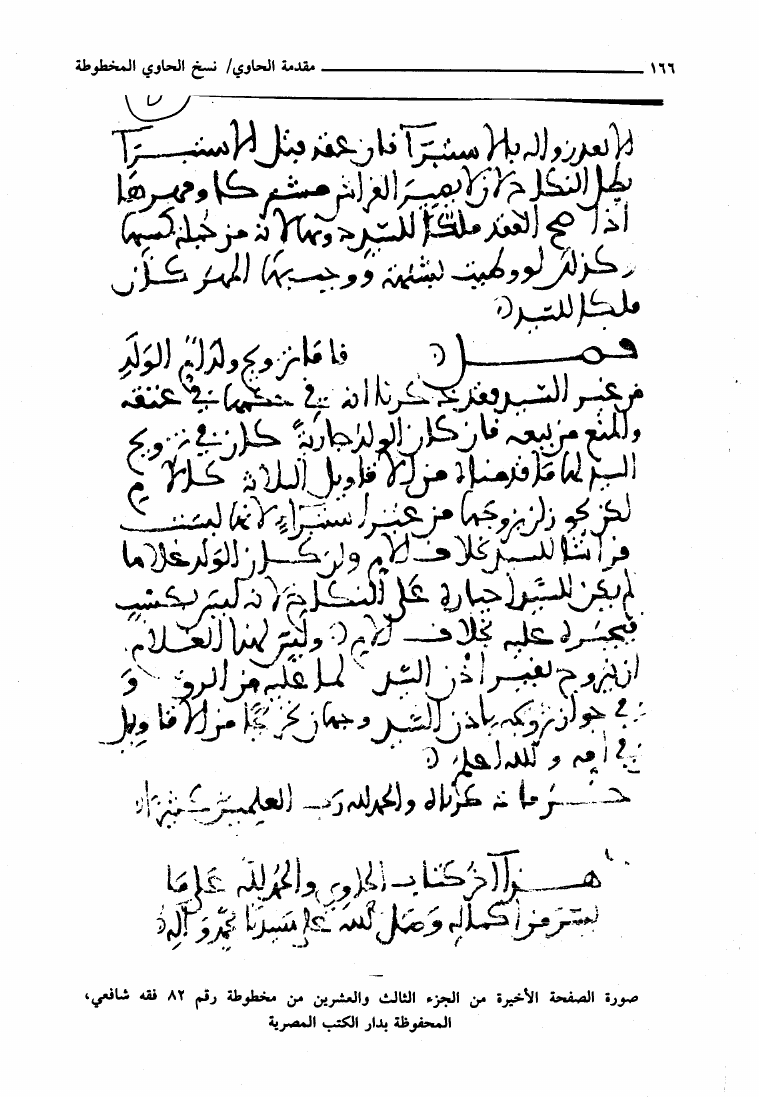 ١٦٦ مقدمة الحاوي/ نسخ الحاوي المخطوطة
بطل النكاح لأن لا يصير الفراش مشتركا ومهرها
اذا صح العقد ملكا للسيد دونها لانه من جملة كسبها
وكذلك لو وطيت بشبهة ووجب لها المهر كان
ملكا للسيد
فصل فاما تزويج ولد ام الولد
من غير السيد فقد ذكرنا انه في حكمها في عتقه
والمنع من بيعه فان كان الولد جارية كان في تزويج
السيد لها ما قدمناه من الاقاويل الثلاثة كالام
لكن يجوز ان يزوجها من غير استبراء لانها ليست
فراشا للسيد بخلاف الام وان كان الولد غلاما
لم يكن للسيد اجباره على النكاح لانه ليس يكتسب
فيجبره عليه بخلاف الام وليس لهذا الغلام
ان يتزوج بغير اذن السيد لما عليه من الرق و
في جواز تزويجه باذن السيد وجهان مخرجا من الاقاويل
في امه والله اعلم
والحمد لله رب العلمين كثيرا
هذا آخر كتاب الحاوي والحمد لله على ما
يسر من اكماله وصلى الله على سيدنا محمد وآله
صورة الصفحة الأخيرة من الجزء الثالث والعشرين من مخطوطة رقم ٨٢ فقه شافعي،
المحفوظة بدار الكتب المصرية